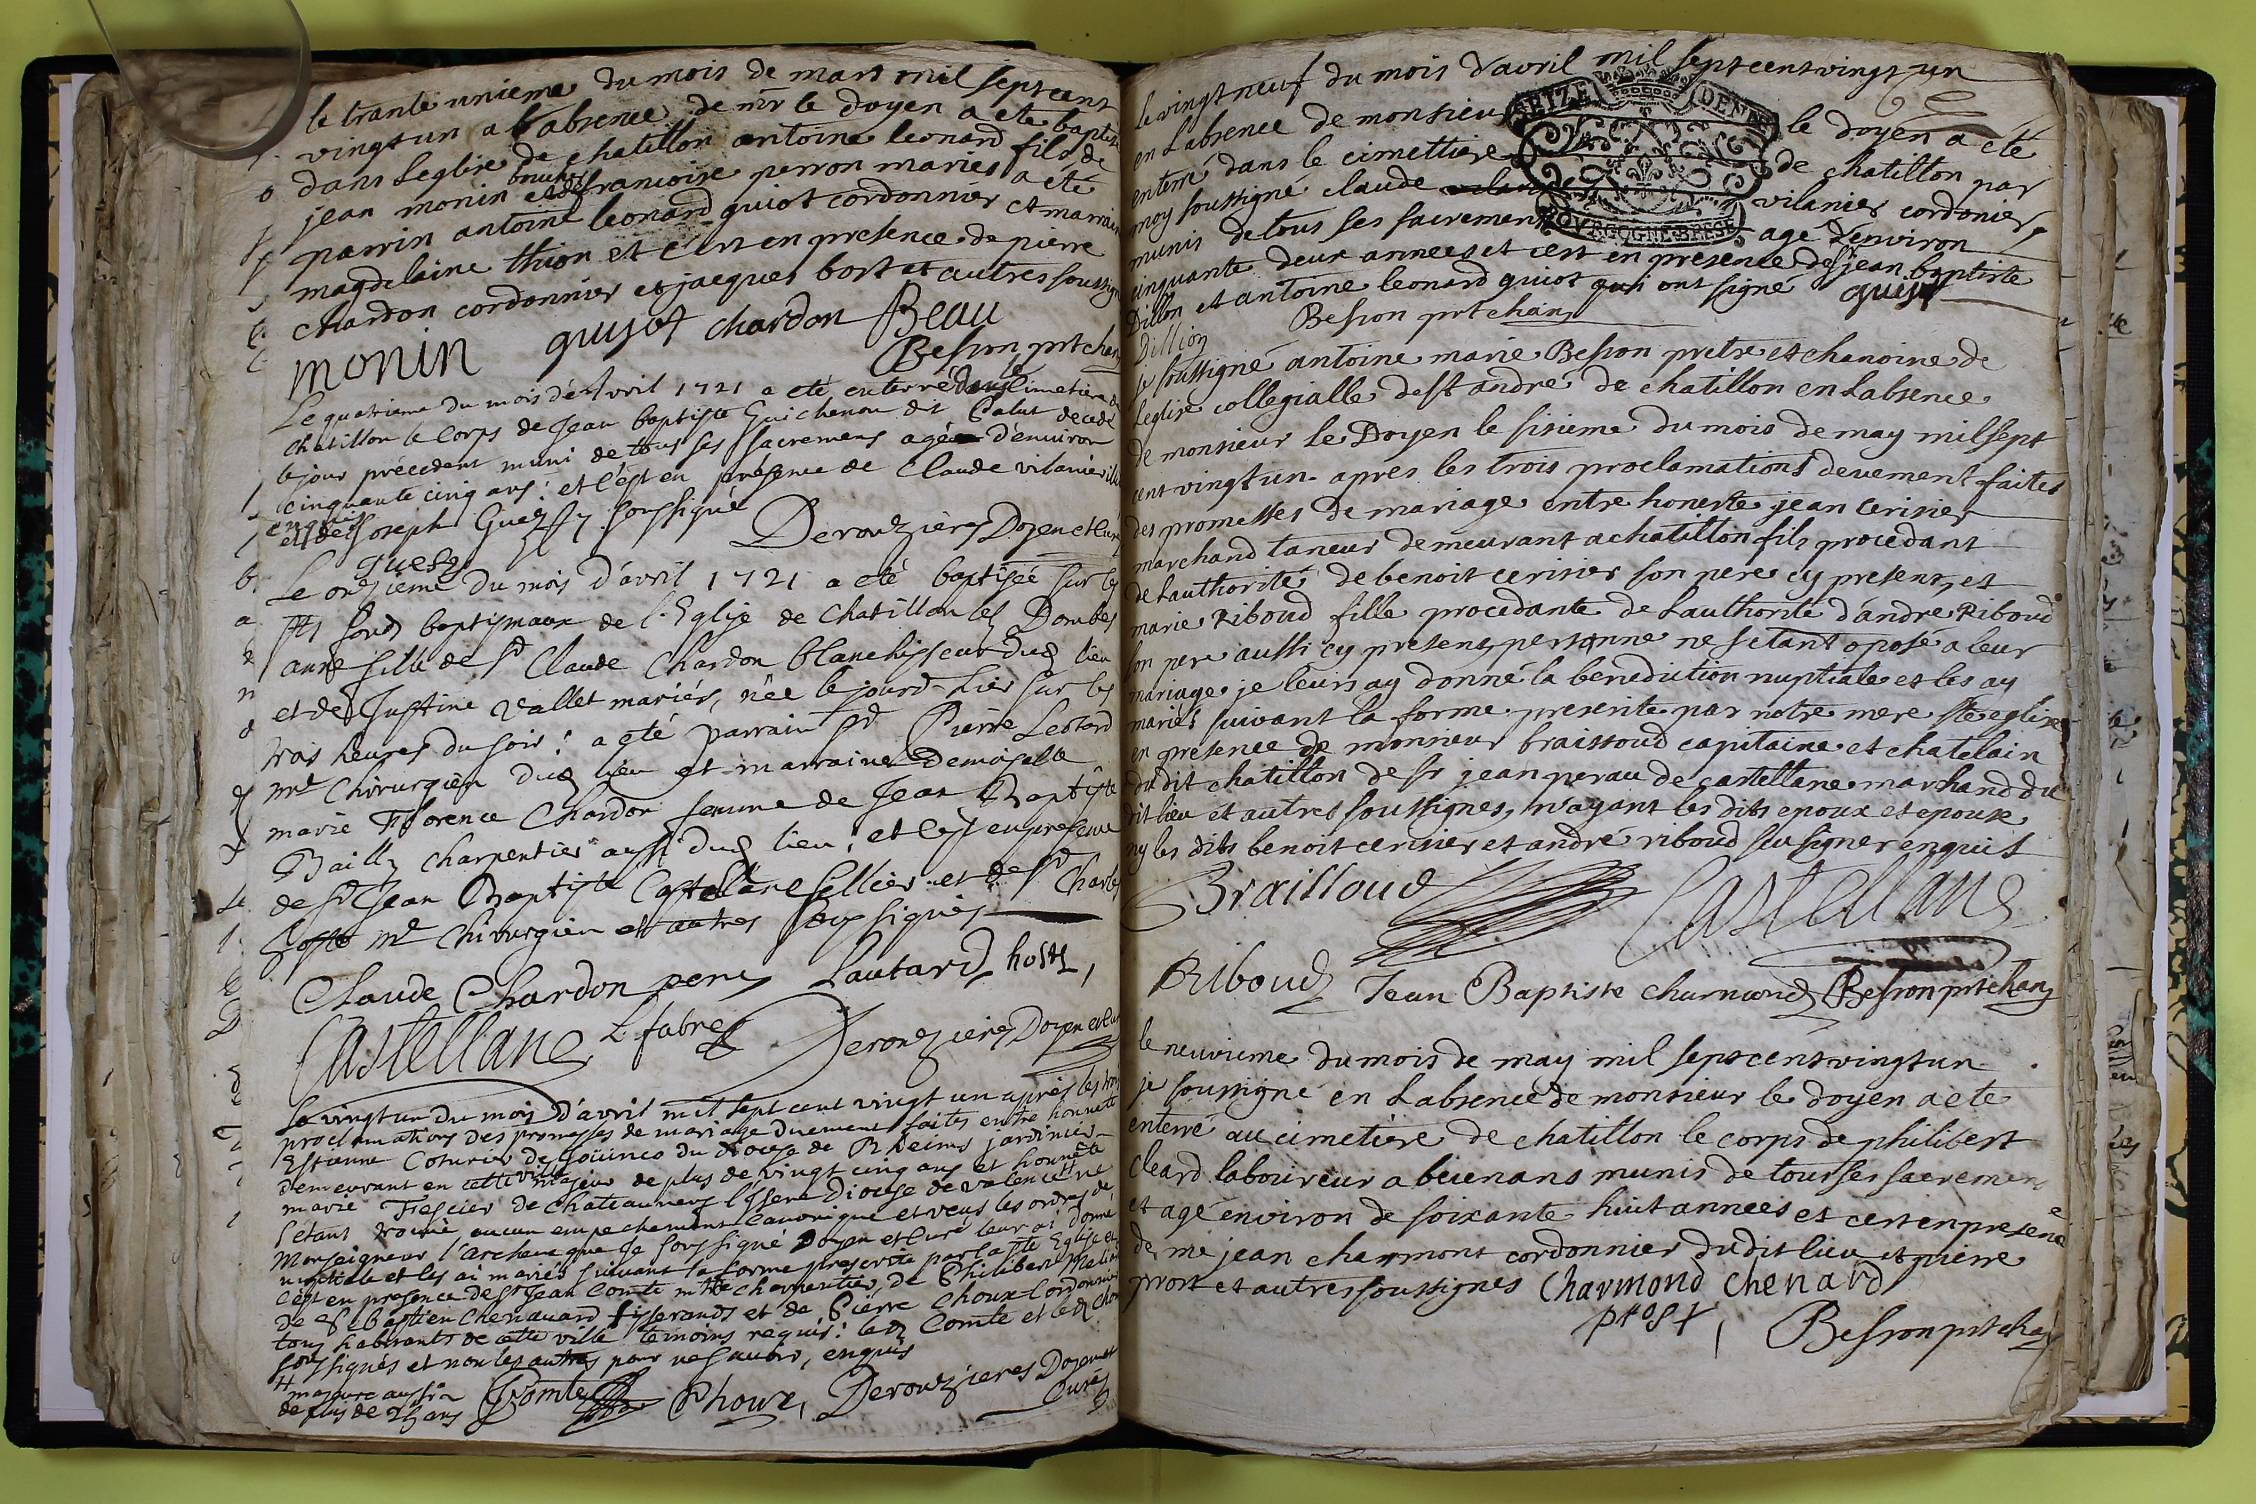 le trante unieme du mois de mars mil sept cent
vingt un a l'absence de mr le doyen a eté baptisé
dans Leglise de chatillon antoine leonard fils de
jean monin boucher et de francoise perron maries a eté
parrin antoine leonard guiot cordonnier et marraine
magdelaine thion et c'est en presence de pierre
chardon cordonnier et jacques bost et autres soussig
monin guyot chardon Beau
Besson prt chan
Le quatrieme du mois d'Avril 1721 a eté enterré dans le cimetiere de
chatillon le Corps de Jean baptiste Guichenon dit Calut decedé
le jour précédent muni de tous ses sacremens agé d'environ
cinquante cinq ans: et c'est en présence de Claude vilanier
et de Joseph Guez soussigné enquis
Guez Derouzières Doyen et Curé
Le onzieme du mois d'avril 1721 a eté baptisée sur les
fonds baptismaux de l'Eglise de Chatillon les Dombes
anne fille de sr Claude Chardon blanchisseur dud lieu
et de Justine Vallet mariés, née le jourd-hier sur les
trois heures du soir: a eté parrain sr Pierre Leotard
me Chirurgien dud lieu et marraine Demoiselle
marie Florence Chardon femme de Jean Baptiste
Bailly charpentier aussi dud lieu: et c'est en presence
de sr Jean Baptiste Castellane sellier et de sr Charles
hoste me Chirurgien et autres soussignés
Claude Chardon pere Lautard hoste,
Castellane Lefabre Derouzieres Doyen et Curé
Le vingt un du mois d'avril mil sept cent vingt un après les trois
proclamations des promesses de mariage duement faites entre honnete
Estienne Coturier de du diocese de Rheims jardinier
demeurant en cette ville majeur de plus de vingt cinq ans et honnete
marie Tessier de Chateauneuf l'Isere Diocese de valence # ne
s'étant trouvé aucun empechement Canonique et veus les ordres de
Monseigneur l'Archeveque Je soussigné Doyen et Curé leur ai donné
nuptiale et les ai mariés suivant la forme prescrite par la ste Eglise et
c'est en presence de sr Jean Comte mtre charpentier de Philibert
de Sebastien Chenavard tisserands et de Pierre Choux Cordonnier
tous habitants de cette ville temoins requis: led Comte et led Choux
soussignés et non les autres pour ne savoir, enquis
# majeure aussi
de plus de 25 ans Comte Choux, Derouzieres Doyen et
Curé
Le vingt neuf du mois d'avril mil sept cent vingt un
en Labsence de monsieur le doyen a eté
enterré dans le cimettiere de chatillon par
moy soussigné claude vilanier cordonier
munis de tous ses sacremens agé d'environ
cinquante deux annees et c'est en presence de sr jean baptiste
Dillon et antoine leonard guiot qui ont signé guiot
Dillion Besson prt chan
SEIZE DEN
BOURGOGNE BRESSE
je soussigné antoine marie Besson pretre et chanoine de
leglise collegialle de st andré de chatillon en Labsence
de monsieur le Doyen le sisieme du mois de may mil sept
cent vingt un apres les trois proclamations deuement faites
des promesses de mariage entre honeste jean cerisier
marchand taneur demeurant a chatillon fils procedant
de Lauthorité de benoit cerisier son pere cy present, et
marie Riboud fille procedante de Lauthorité d'andre Riboud
son pere aussi cy present, personne ne setant oposé a leur
mariage je leurs ay donné la benediction nuptiale et les ay
mariés suivant la forme prescrite par notre mere ste eglise
en presence de monsieur braissoud capitaine et chatelain
dudit chatillon de sr jean perau de castellane marchand du
dit lieu et autres soussignes, n'ayant les dits epoux et epouse
ny les dits benoit cerisier et andré riboud su signer enquis
Braissoud Castellane
Riboud Jean Baptiste Charmond Besson prt chan
le neuvieme du mois de may mil sept cent vingt un
je soussigné en Labsence de monsieur le doyen a ete
enterré au cimetiere de chatillon le corps de philibert
cleard laboureur a buenans munis de tous ses sacremens
et agé environ de soixante huit annees et c'est en presence
de me jean charmont cordonnier dudit lieu et pierre
prost et autres soussignes Charmond Chenard
prost, Besson prt chan